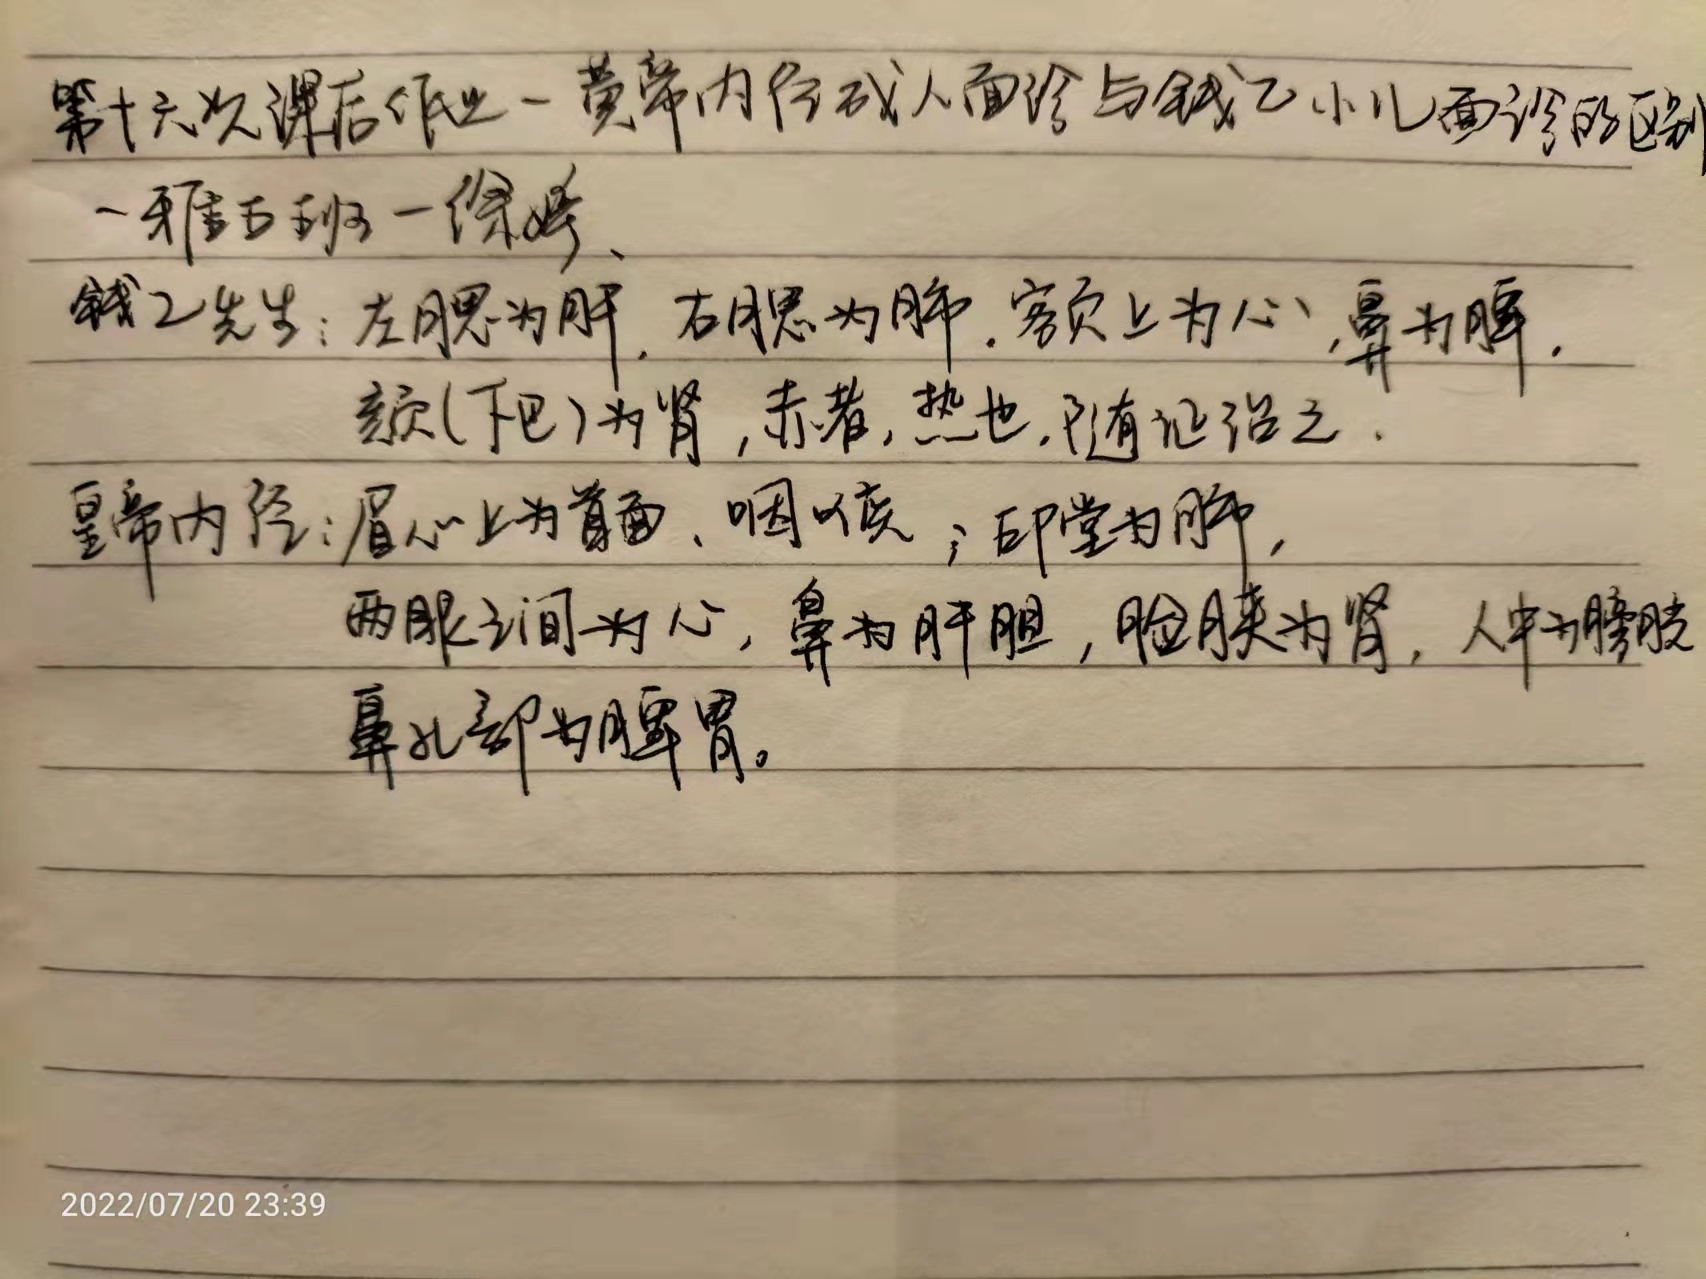 第十六次课后作业一黄帝内经成人面诊与钱乙小儿面诊的区别
一雅五班一徐婷、
钱乙先生：左腮为肝，右腮为肺．额上为心，鼻为脾．
颏(下巴)为肾，赤者，热也，随证治之．
皇帝内经：眉心上为首面、咽喉；印堂为肺，
两眼之间为心，鼻为肝胆，脸颊为肾，人中为膀胱
鼻孔部为脾胃。
2022/07/20 23:39